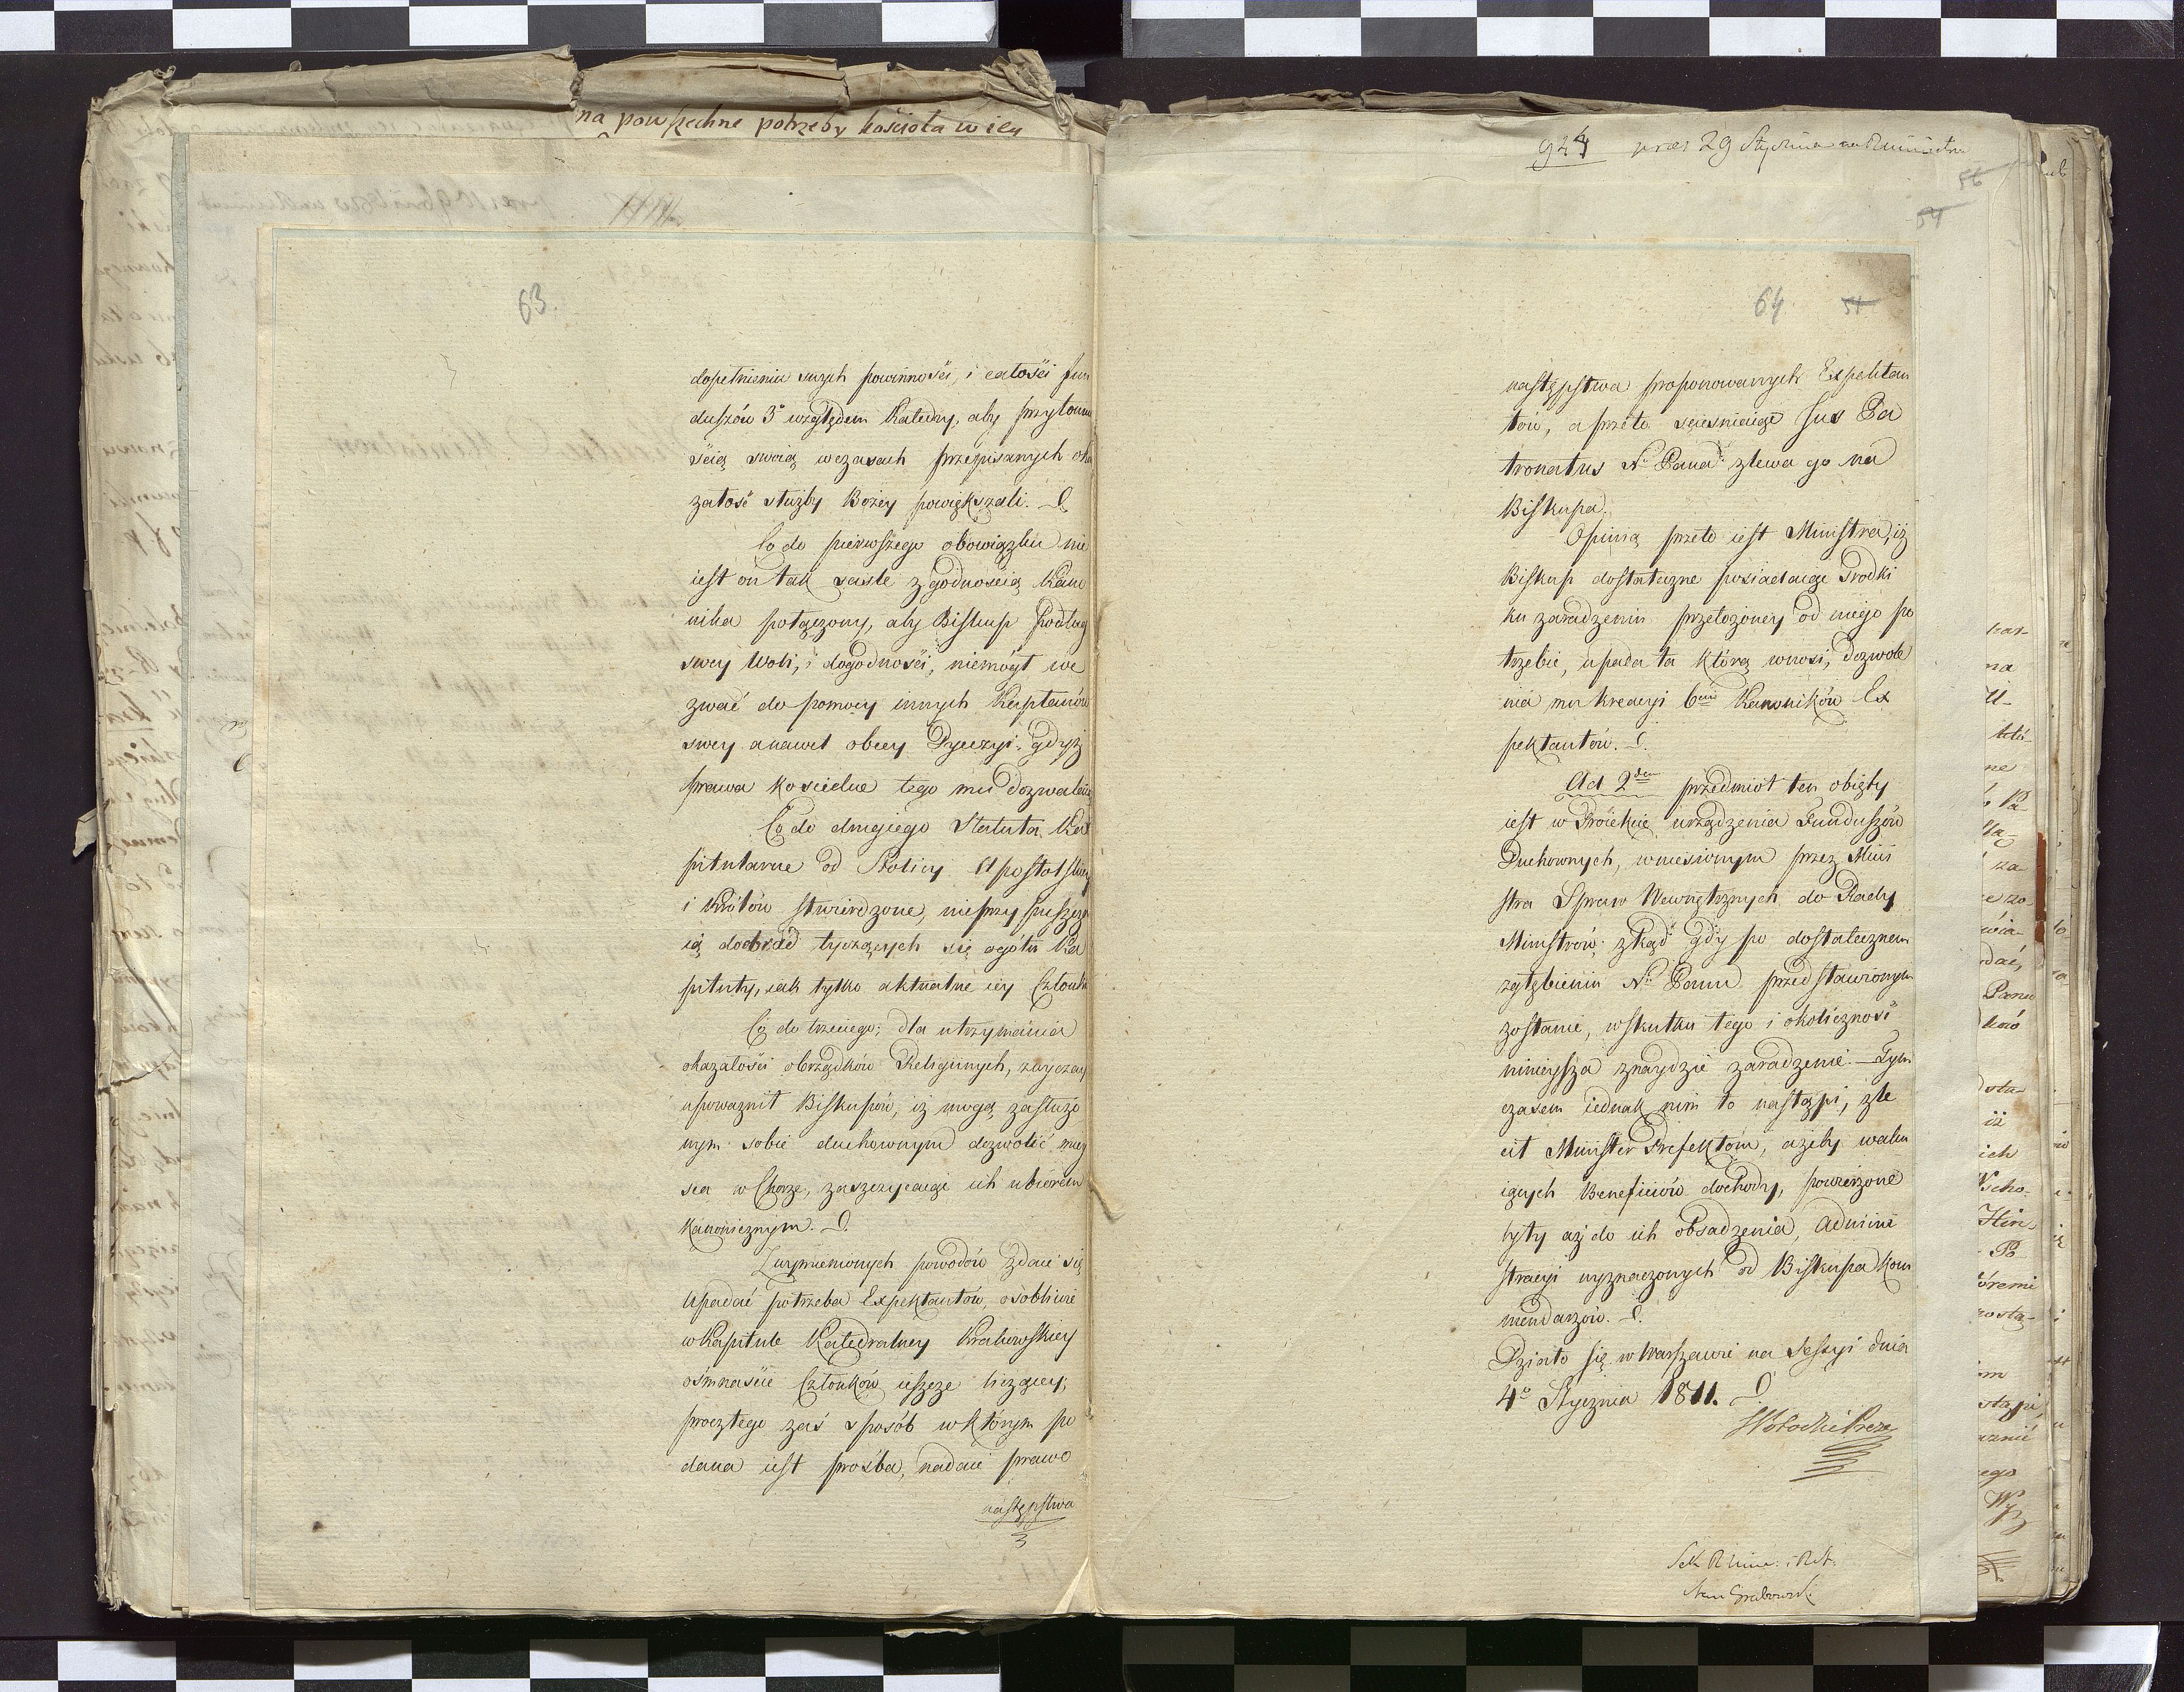 na powszechne potrzeby kościoła w ieg
63.
dopełnieniu swych powinności, i całości fun
duszów 3° względem Katedry, aby przytomno
ścią swoią w czasach przepisanych oka
załość służby Bożey powiększali.
Co do pierwszego obowiązku nie
iest on tak ściśle z godnością Kano
nika połączony, aby Biskup podług
swey Woli, i dogodności, niemógł we
zwać do pomocy innych Kapłanów
swey a nawet obcey Dyecezyi, gdyż
prawa kościelne tego mu dozwalaią
Co do drugiego Statuta Ka
pitularne od Stolicy Apostolskiey
i Królów stwierdzone, nieprzypuszcza
ią do obrad tyczących się ogółu Ka
pituły, iak tylko aktualne iey Członki
Co do trzeciego; dla utrzymania
okazałości obrządków Religiinych, zwyczay
upoważnił Biskupów, iż mogą zasłużo
nym sobie duchownym dozwolić miey
sca w Chorze, zaszczycaiąc ich ubiorem
kanonicznym.
Z wymienionych powodów zdaie się
upadać potrzeba Expektantów, osobliwie
w Kapitule Katedralney Krakowskiey
ośmnaście Członków ieszcze liczącey;
procz tego zaś sposób w którym po
dana iest prośba, nadaie prawo
następstwa
924 prez 29 Stycznia
56
54
64. 54
następstwa proponowanych Expektan
tów, a przeto ścieśniaiąc Jus Pa
tronatus N. Pana zlewa go na
Biskupa.
Opinią przeto iest Ministra, iż
Biskup dostateczne posiadaiąc Srodki
ku zaradzeniu przełożoney od niego po
trzebie, upada ta którą wnosi, dozwole
nia mu kreacyi 6ciu Kanoników Ex
pektantów.
Ad 2dum przedmiot ten obięty
iest w Proiekcie urządzenia Funduszów
Duchownych, wniesionym przez Mini
stra Spraw Wewnętrznych do Rady
Ministrów; zkąd gdy po dostatecznem
zgłębieniu N. Panu przedstawionym
zostanie, w skutku tego i okoliczność
ninieysza znaydzie zaradzenie. Tym
czasem iednak nim to nastąpi, zle
cił Minister Prefektom, ażeby waku
iących Beneficiów dochody, powierzone
były aż do ich obsadzenia, Admini
stracyi wyznaczonych od Biskupa Kom
mendarzów.
Działo się w Warszawie na Sessyi dnia
4° Stycznia 1811.
Sek R Min: i R St:
Stan Grabowski